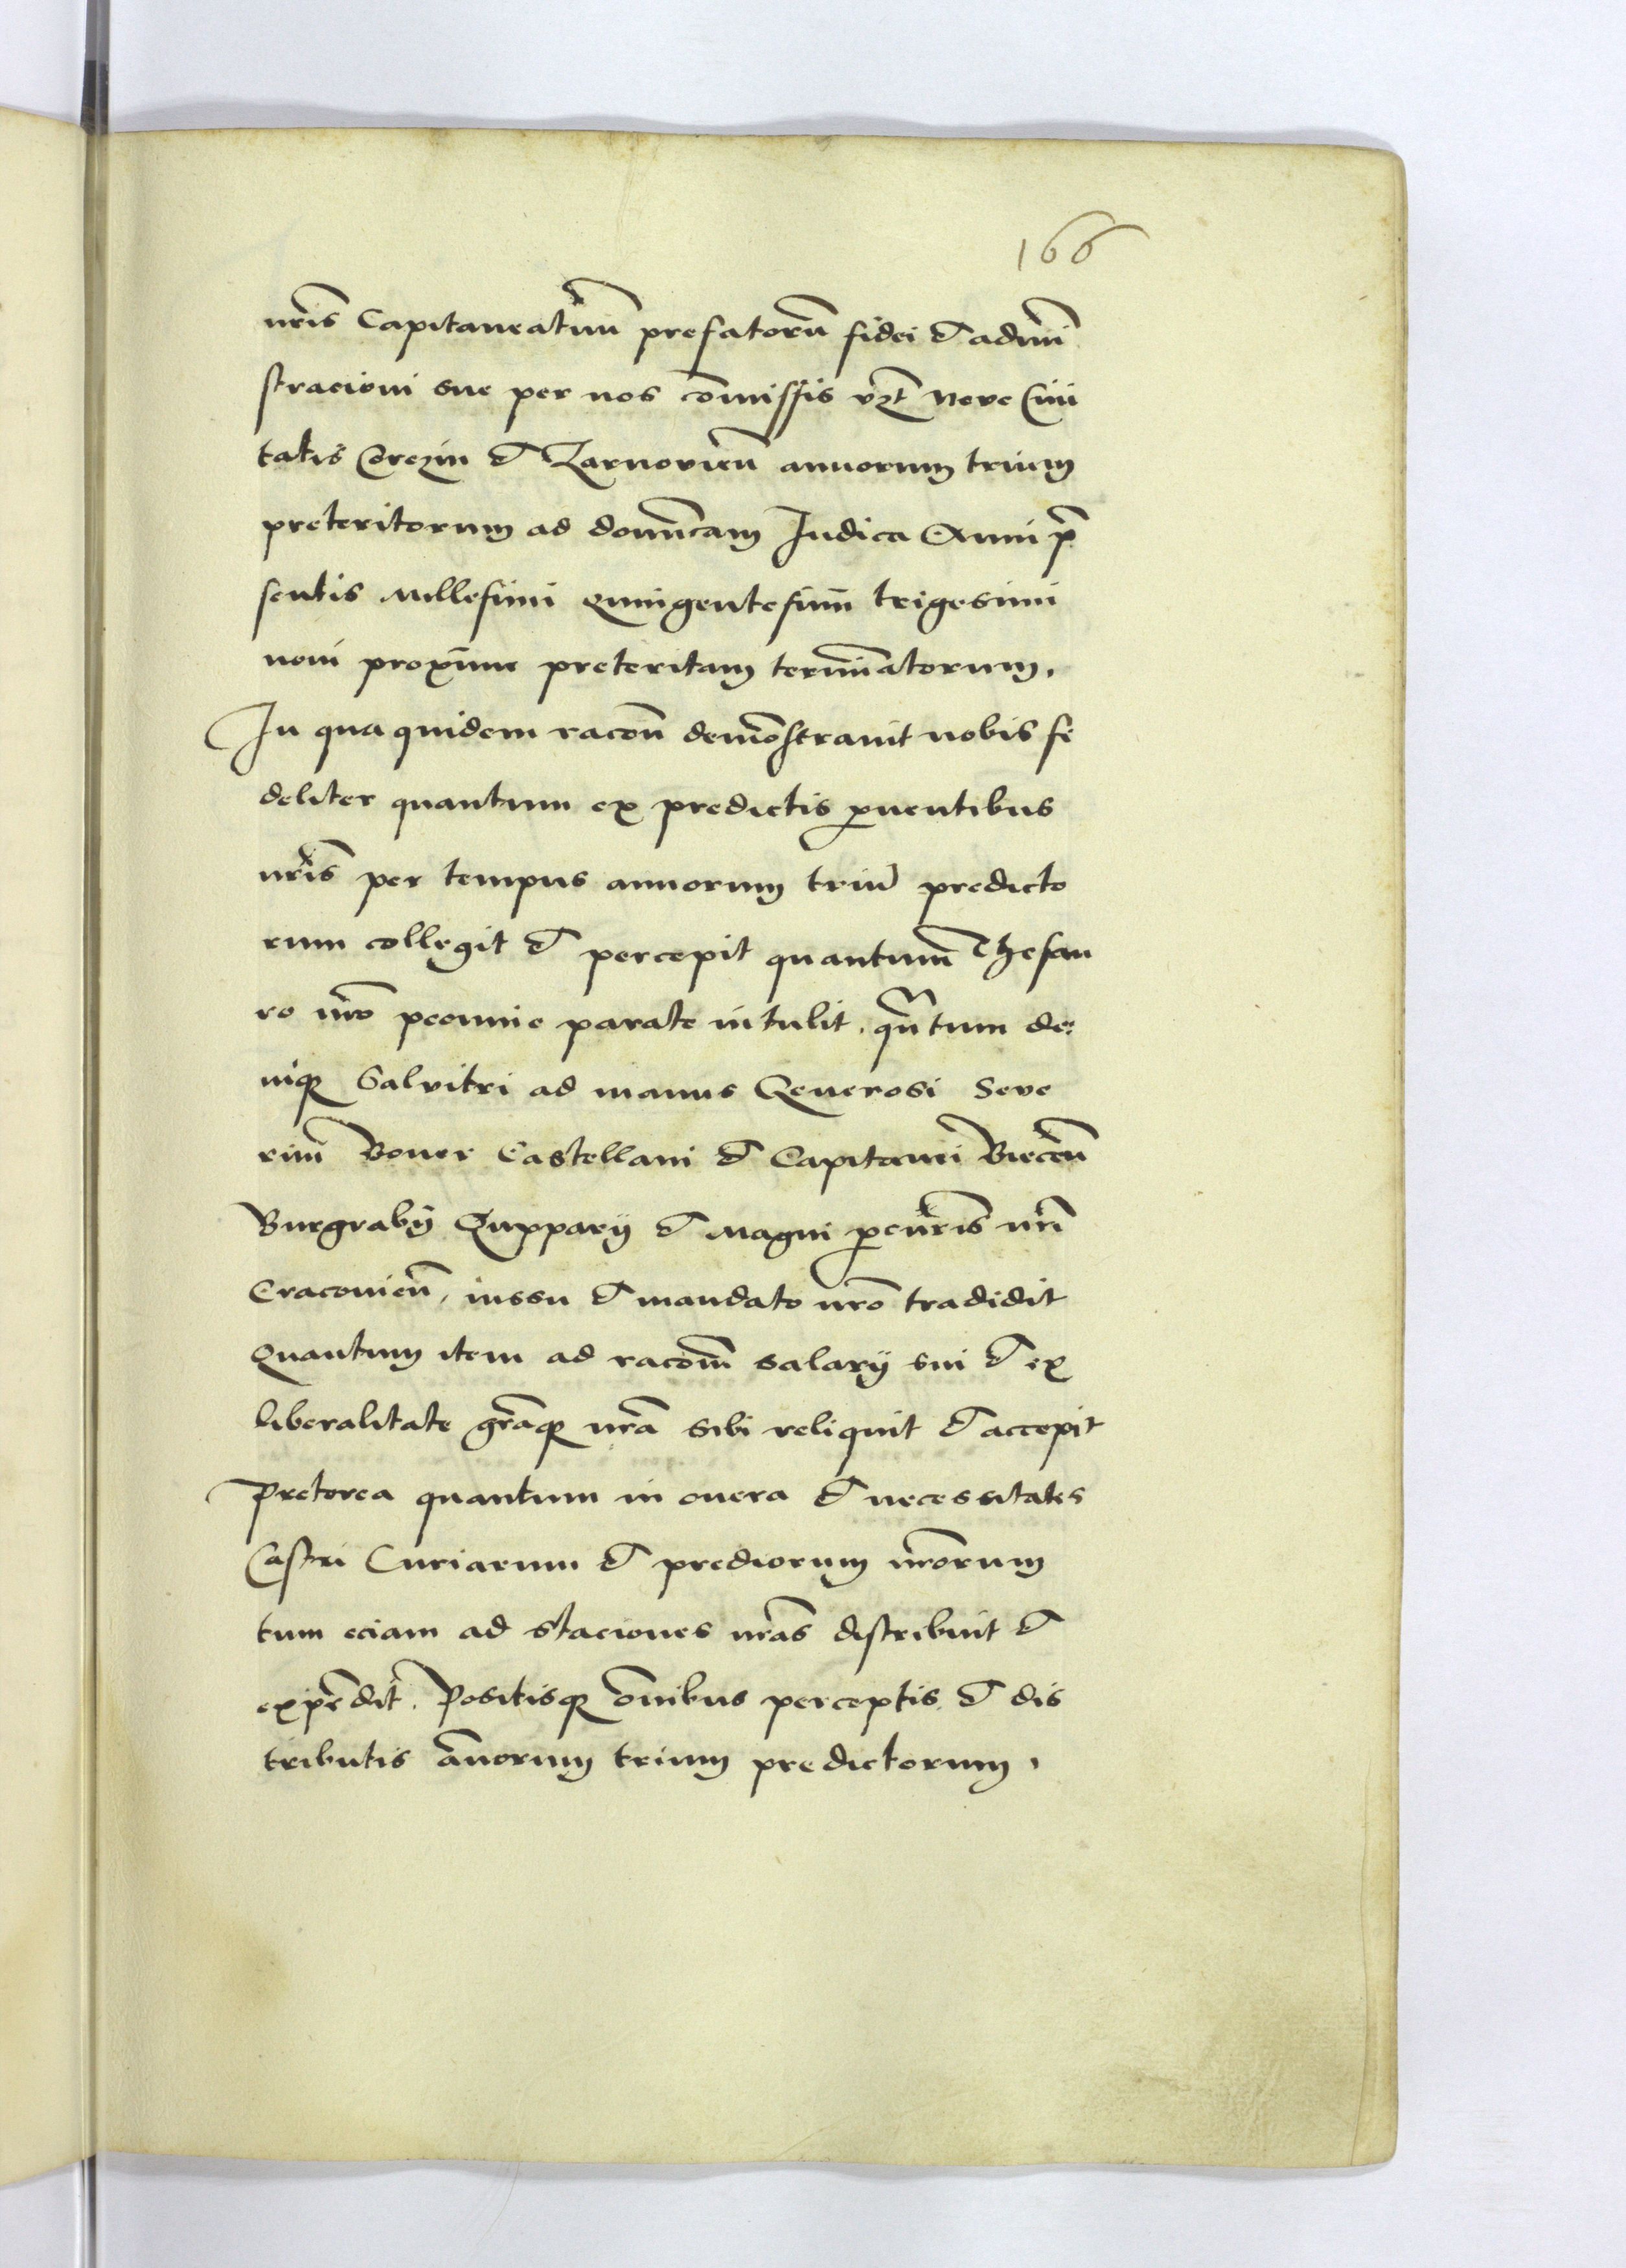 166
nr̄is Capitaneatuū prefatorū fidei & admi
stracioni sue per nos ōmissis vzt Nove Civi
tatis Corczin & Zarnovieñ annorum trium
preteritorum ad domīcam Iudica Anni p̄
sentis Millesimi Quingentesimi trigesimi
noni proxime preteritam termīatorum.
In qua quidem racoñ demōstravit nobis fi
deliter quantum ex predictis ꝓventibus
nr̄is per tempus annorum triū predicto
rum collegit & percepit quantum Thesau
ro nr̄o pecunie parate intulit. qn̄tum de:
niqꝫ Salvitri ad manus Generosi Seve
rini Boner Castellani & Capitanei Biecen̄
Burgrabij Zupparij & Magni ꝓcur̄is nr̄i
Cracovieñ, iussu & mandato nr̄o tradidit
Quantum item ad racoēm salarij sui & ex
liberalitate gr̄aqꝫ nr̄a sibi reliquit & accepit
Preterea quantum in onera & necessitates
Castri Curiarum & prediorum nr̄orum
tum eciam ad staciones nr̄as distribuit &
expēdit. Positisqꝫ ōnibus perceptis & dis
tributis ānorum trium predictorum.